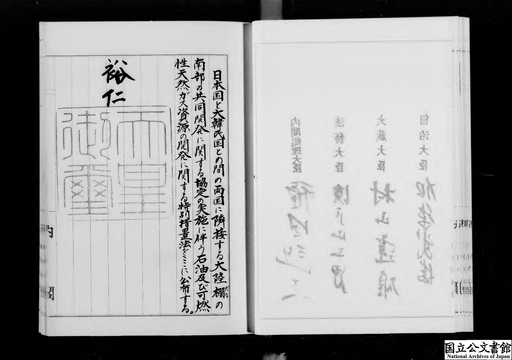 日本国と大韓民国との間の両国に隣接する大陸棚の
南部の共同開発に関する協定の実施に伴う石油及び可燃
性天然ガス資源の開発に関する特別措置法をここに公布する。
裕仁
天皇
御璽
内閣
自治大臣
大蔵大臣 村山達雄
法務大臣 瀬戸山三男
内閣総理大臣
国立公文書館
National Archives of Japan